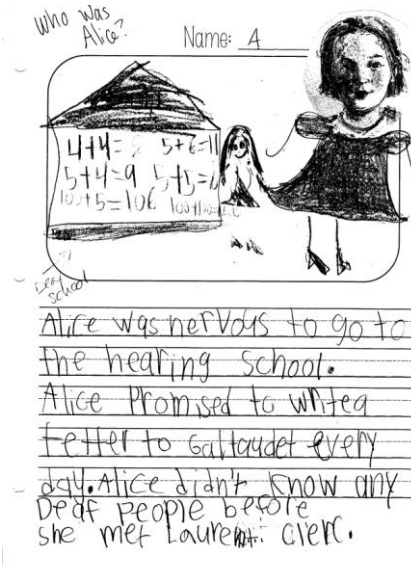 Who was
Alice?
Name: A
4+4=8 5+6=11
5+4=9 5+5=
100+5=106 100+100=
Deaf
school
Alice was nervous to go to
the hearing school.
Alice Promised to write a
letter to Gallaudet every
day. Alice didn't know any
Deaf People before
she met Laurent Clerc.